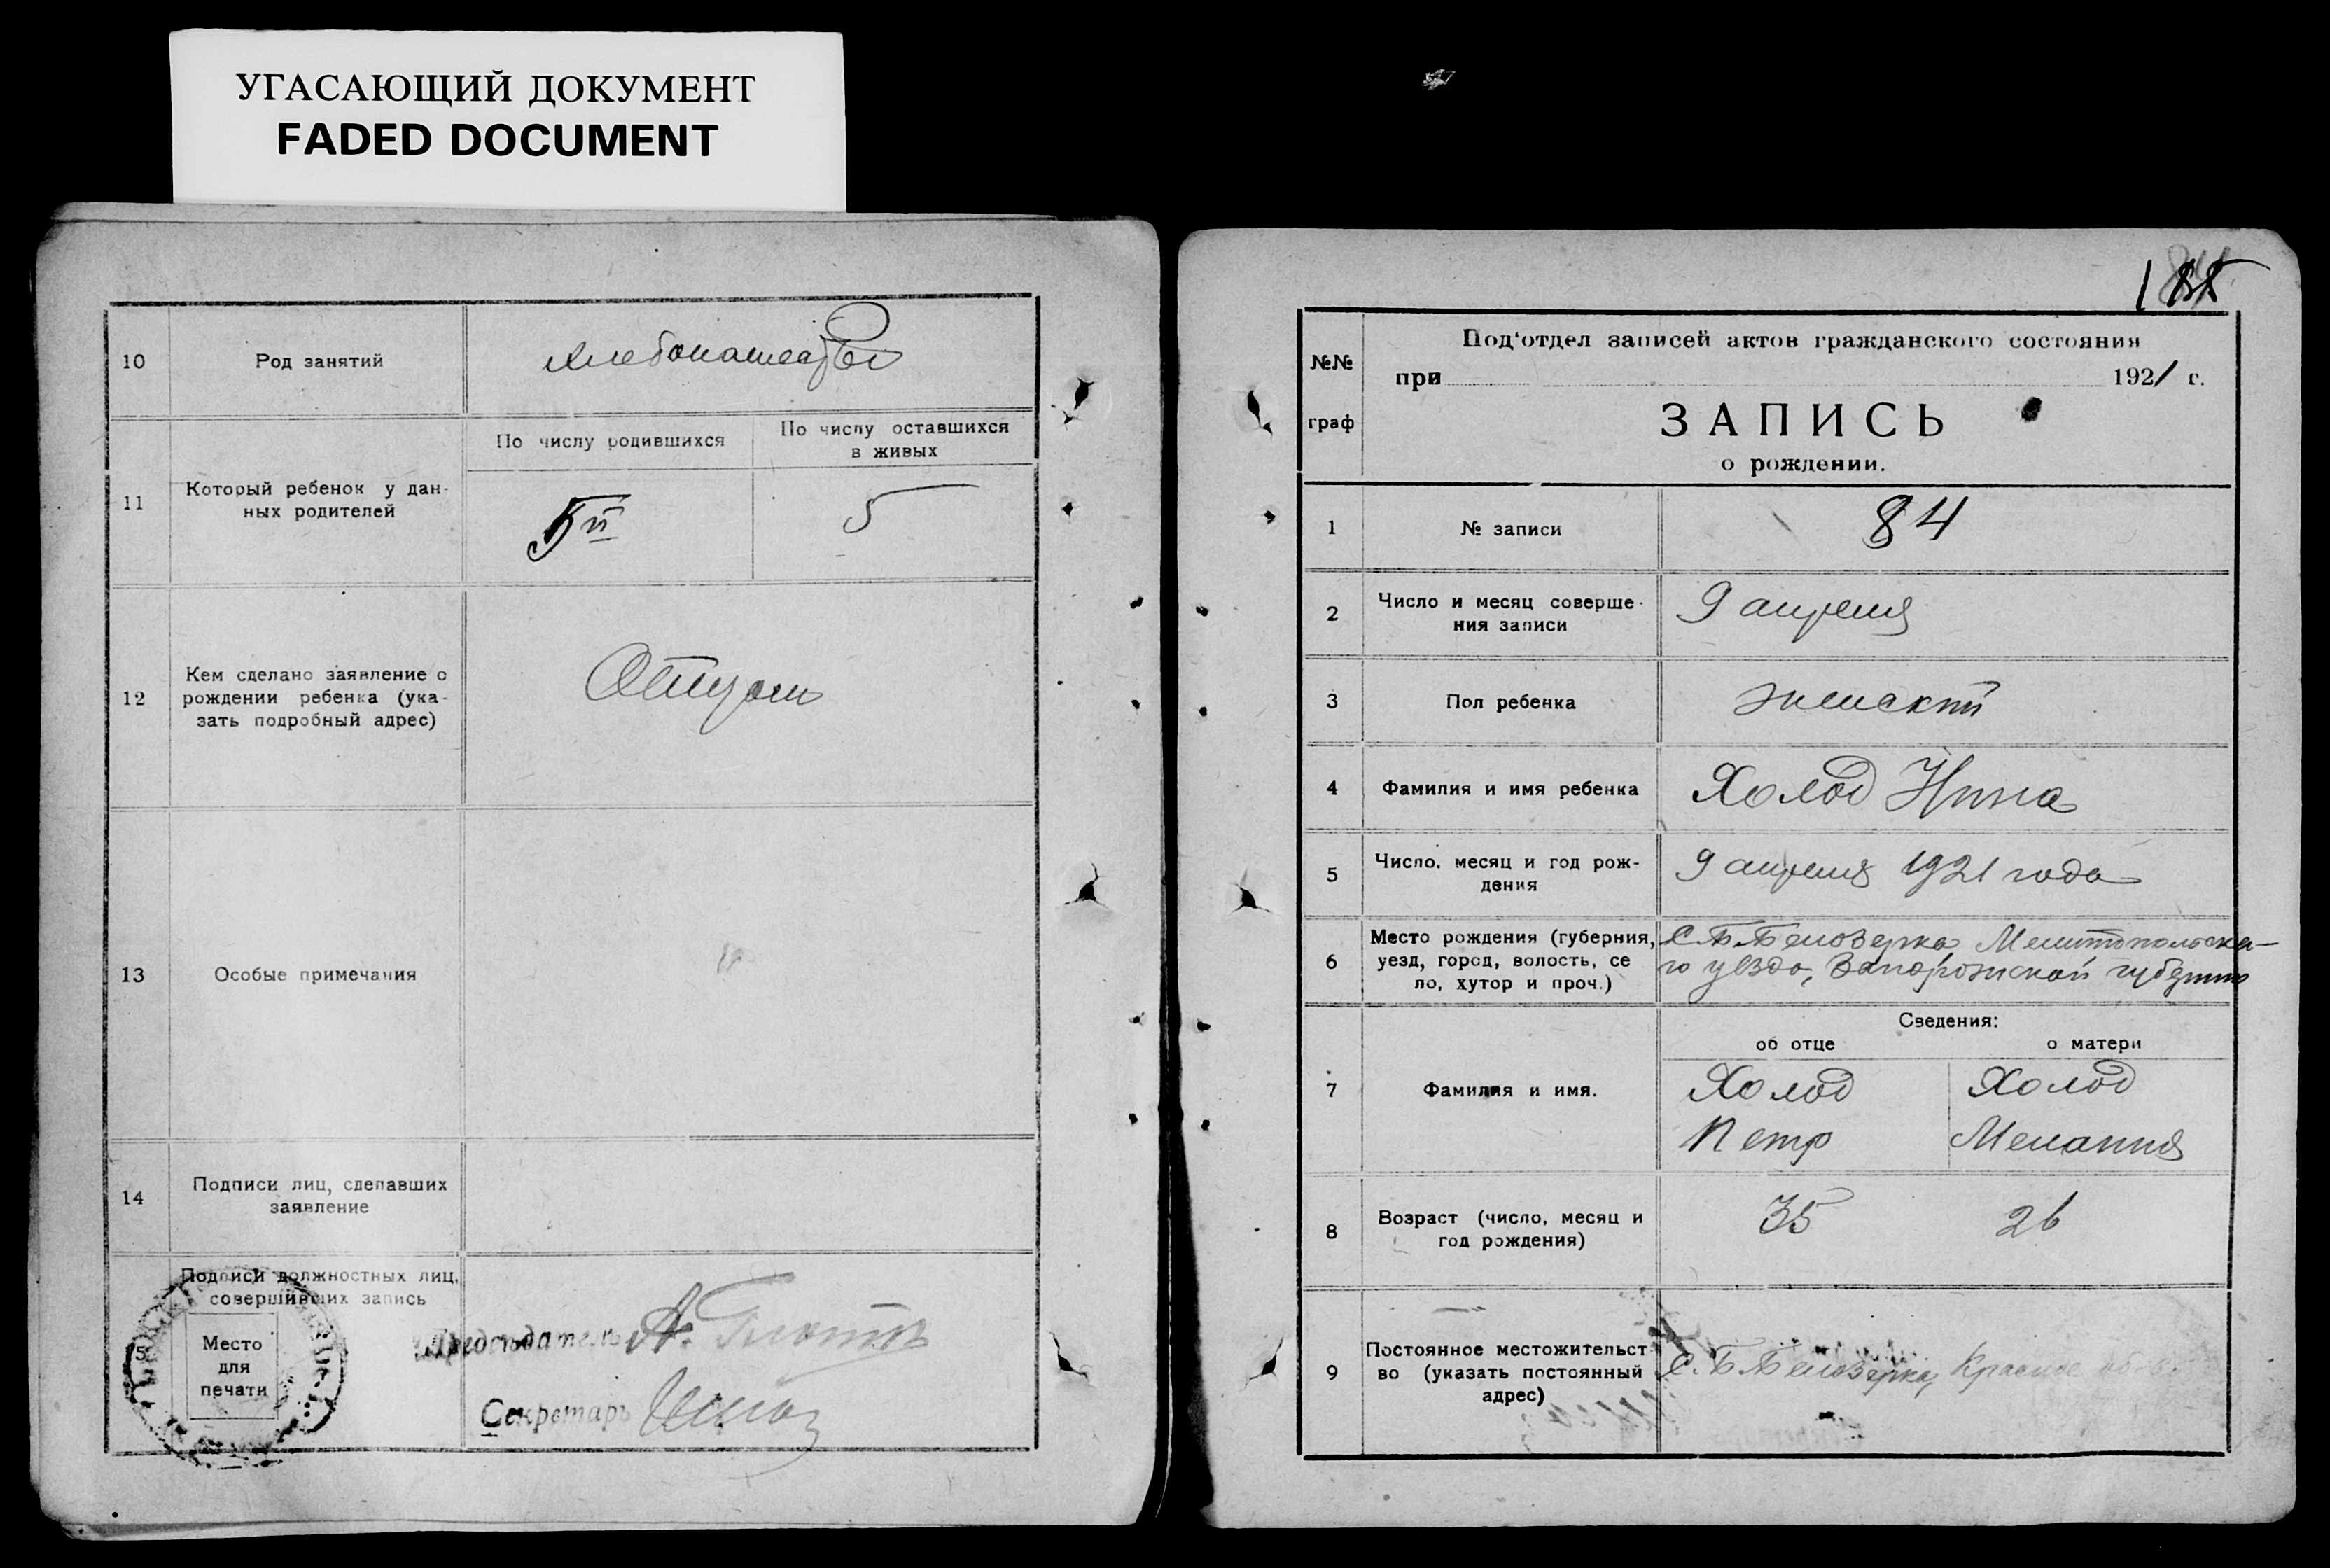 УГАСАЮЩИЙ ДОКУМЕНТ
FADED DOCUMENT
10
Род занятий
Хлебопашество
11
Который ребенок у дан-
ных родителей
По числу родившихся
По числу оставшихся
в живых
5й
5
12
Кем сделано заявление о
рождении ребенка (ука-
зать подробный адрес)
Отцом
13
Особые примечания
14
Подписи лиц, сделавших
заявление
Подписи должностных лиц,
совершивших запись
5
Место
для
печати
Председатель А.
Секретарь
№№
граф
Под'отдел записей актов гражданского состояния
при 1921 г.
ЗАПИСЬ
о рождении.
1
№ записи
84
2
Число и месяц соверше-
ния записи
9 апреля
3
Пол ребенка
женский
4
Фамилия и имя ребенка
Холод Нина
5
Число, месяц и год рож-
дения
9 апреля 1921 года
6
Место рождения (губерния,
уезд, город, волость, се
ло, хутор и проч.)
С. Б. Белозерка Мелитопольска-
го уезда, Запорожской губернии
Сведения:
об отце
о матери
7
Фамилия и имя.
Холод
Петр
Холод
Мелания
8
Возраст (число, месяц и
год рождения)
35
26
9
Постоянное местожительст
во (указать постоянный
адрес)
С. Б. Белозерка,